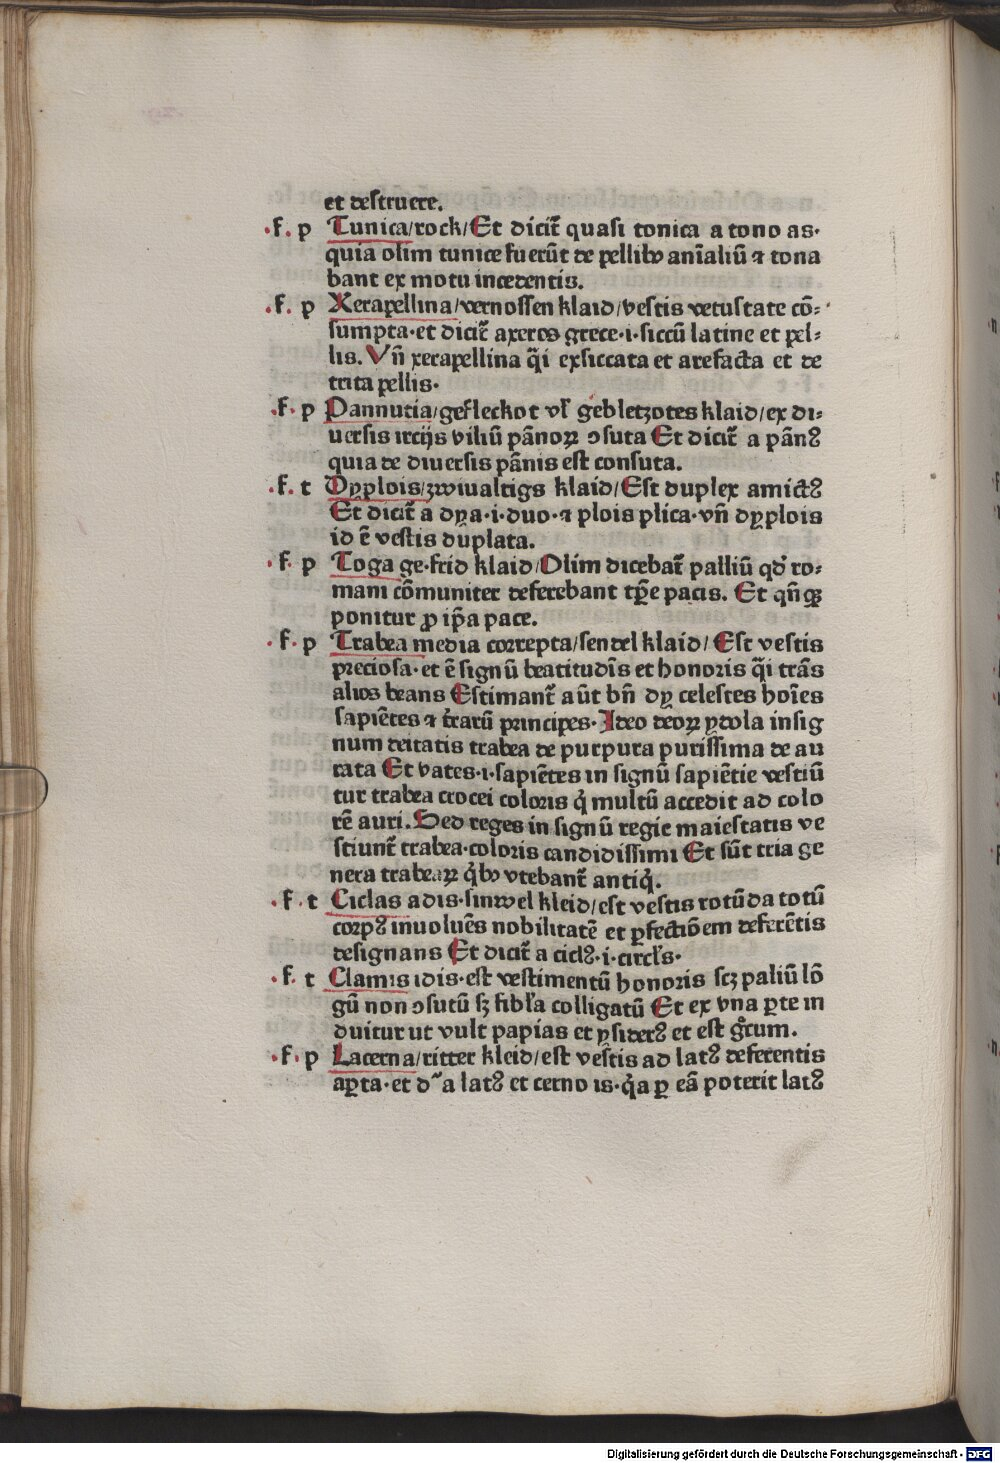 et destruere.
.f. p Tunica/rock/Et dicit̄ quasi tonica a tono as·
quia olim tunice fuerūt de pellibꝰ anīaliū ⁊ tona
bant ex motu incedentis.
.f. p Xerapellina/vernossen klaid/vestis vetustate cō⸗
sumpta·et dicit̄ axeros grece·i·siccū latine et pel⸗
lis. Vn̄ xerapellina q̄i exsiccata et arefacta et de
trita pellis·
.f. p Pannutia/gefleckot vl̄ gebletzotes klaid/ex di⸗
uersis ircijs viliū pānoꝝ ꝯsuta Et dicit̄ a pānꝰ
quia de diuersis pānis est consuta.
.f. t Dyplois/zwiualtigs klaid/Est duplex amictꝰ
Et dicit̄ a dya·i·duo·⁊ plois plica·vn̄ dyplois
id ē vestis duplata.
.f. p Toga ge·frid klaid/Olim dicebat̄ palliū qd̄ ro⸗
mani cōmuniter deferebant tp̄e pacis. Et qn̄qꝫ
ponitur ꝓ ip̄a pace.
.f. p Trabea media correpta/sendel klaid/Est vestis
preciosa·et ē signū beatitudīs et honoris q̄i trās
alios beans Estimant̄ aūt bn̄ dy celestes hoīes
sapiētes ⁊ t̄rarū principes·Ideo deoꝝ ydola insig
num deitatis trabea de purpura purissima de au
rata Et vates·i·sapiētes in signū sapiētie vestiū
tur trabea crocei coloris q̇ multū accedit ad colo
rē auri. Sed reges in signū regie maiestatis ve
stiunt̄ trabea·coloris candidissimi Et sūt tria ge
nera trabeaꝝ q̇bꝰ vtebant̄ antiq̇.
.f. t Ciclas adis·sinwel kleid/est vestis rotūda totū
corpꝰ inuoluēs nobilitatē et ꝑfectiōem deferētis
designans Et dicit̄ a ciclꝰ·i·circl̄s·
.f. t Clamis idis·est vestimentū honoris scꝫ paliū lō
gū non ꝯsutū sꝫ fibl̄a colligatū Et ex vna ꝑte in
duitur ut vult papias et ysiderꝰ et est gr̄cum.
.f. p Lacerna/ritter kleid/est vestis ad latꝰ deferentis
aꝑta·et dr̄ a latꝰ et cerno is·q̇a ꝑ eā poterit latꝰ
Digitalisierung gefördert durch die Deutsche Forschungsgemeinschaft - DFG